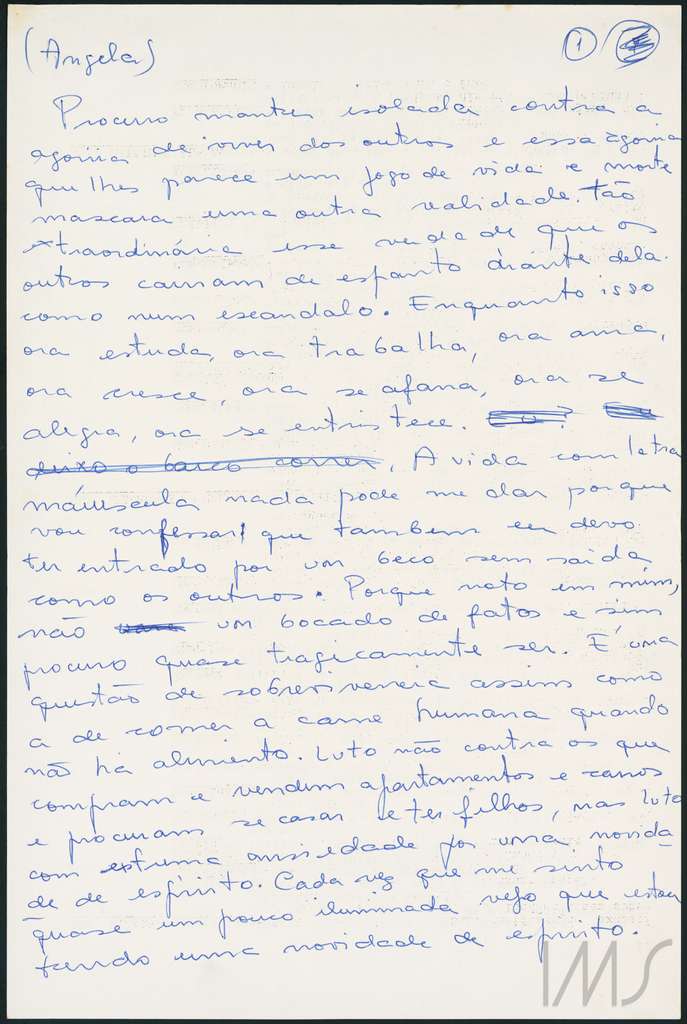 (Angela)
1
Procuro manter isolada contra a
agonia de viver dos outros e essa agonia
que lhes parece um jogo de vida e morte
mascara uma outra realidade. tão
extraordinária esse verdade que os
outros cairiam de espanto diante dela.
como num escandalo. Enquanto isso
ora estuda, ora trabalha, ora ama,
ora cresce, ora se afana, ora se
alegra, ora se entristece.
deixo o barco correr, A vida com letra
máiuscula nada pode me dar porque
vou confessar que tambem eu devo
ter entrado por um beco sem saida
como os outros. Porque noto em mim,
não um bocado de fatos e sim
procuro quase tragicamente ser. É uma
questão de sobrevivencia assim como
a de comer a carne humana quando
não há alimento. Luto não contra os que
compram e vendem apartamentos e carros
e procuram se casar e ter filhos, mas luto
com extrema ansiedade por uma novida
de de espírito. Cada vez que me sinto
quase um pouco iluminada vejo que estou
tendo uma novidade de espirito.
IMS